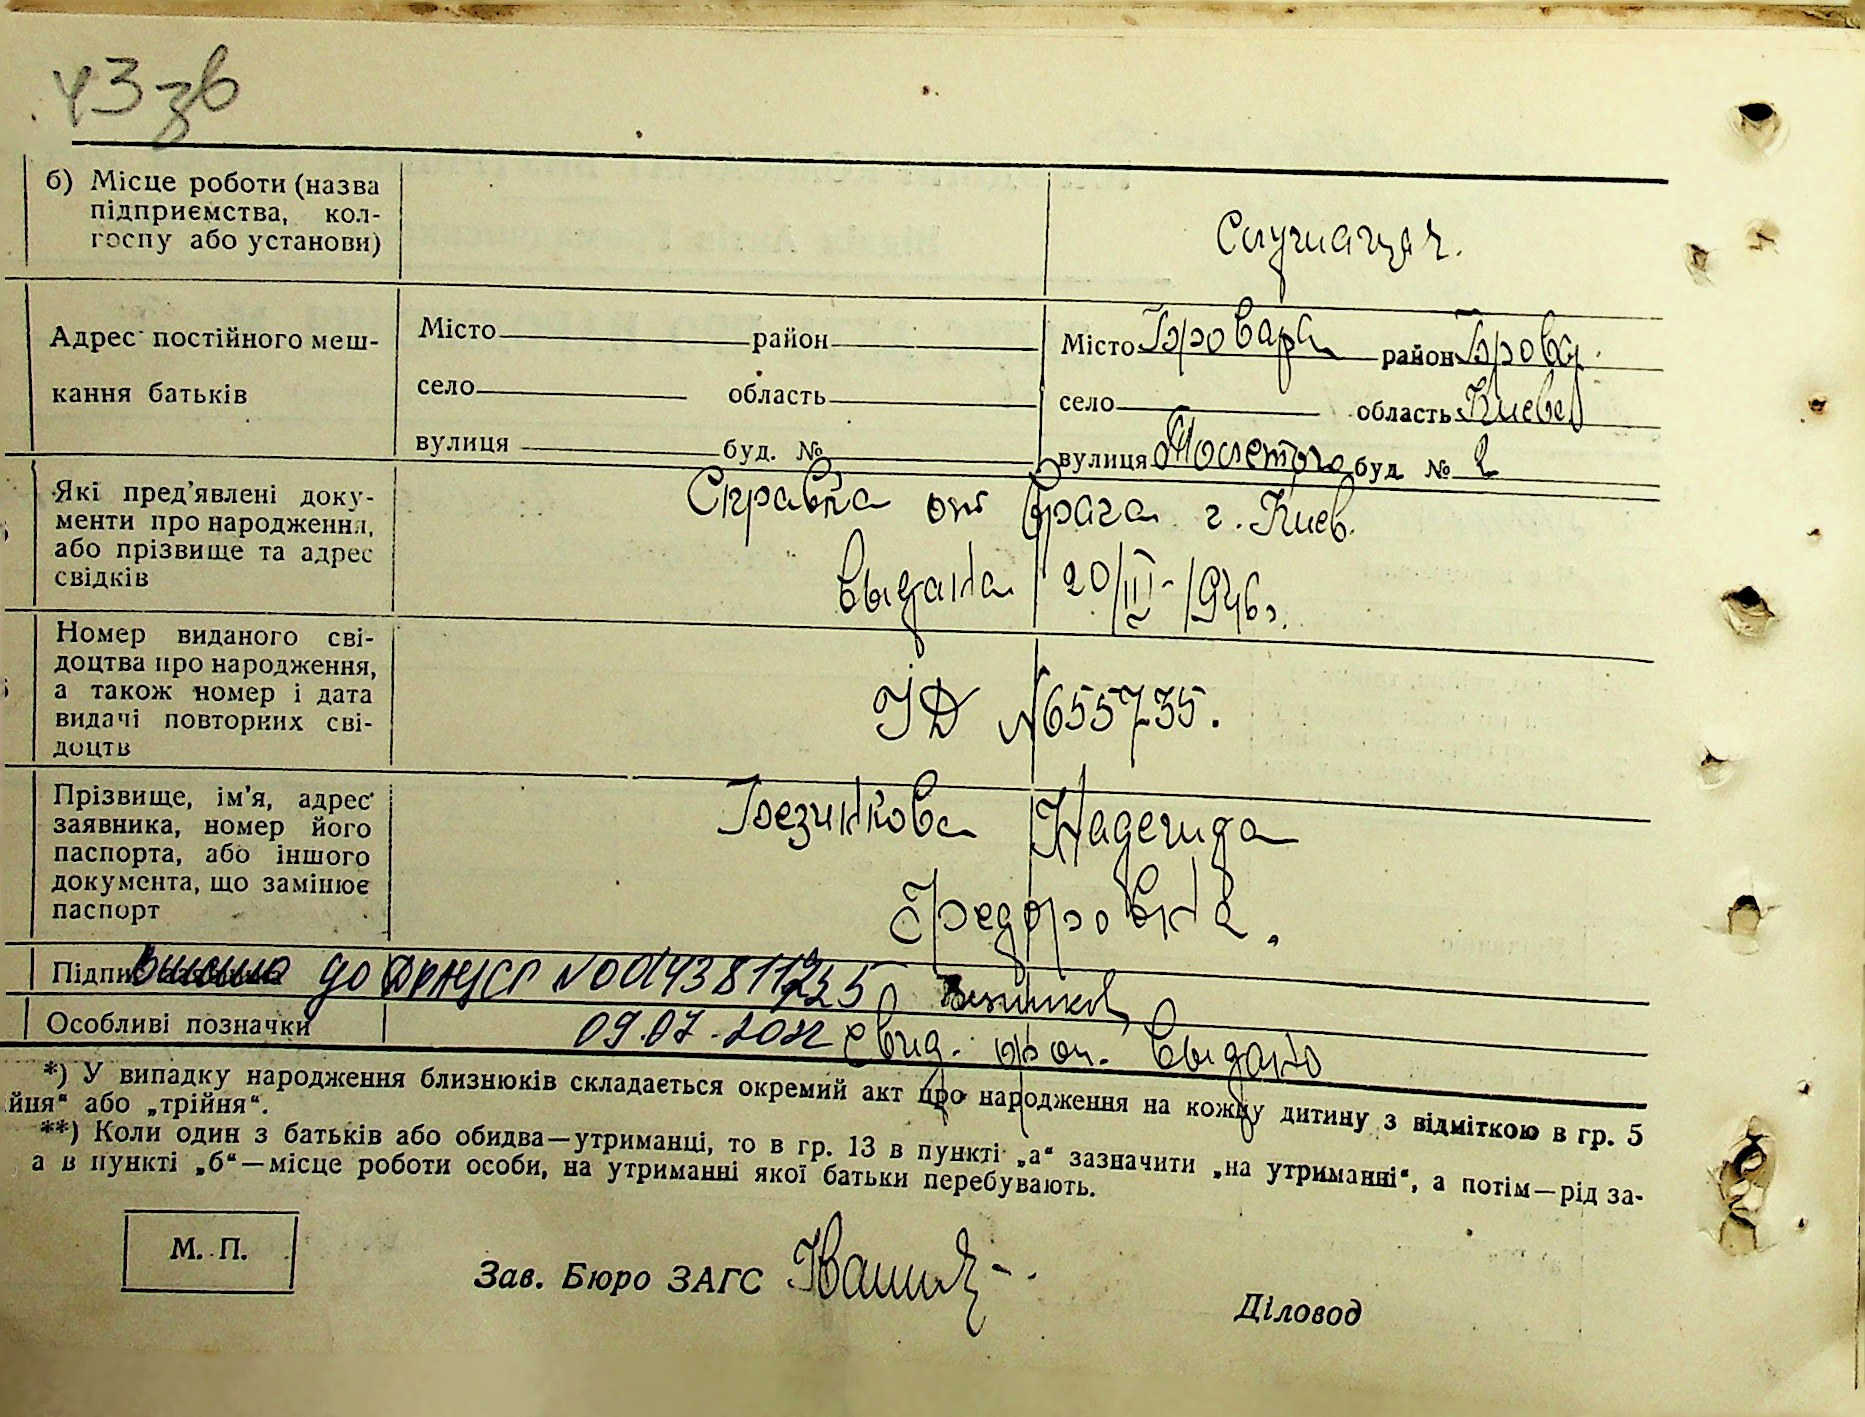 43 зв
б) Місце роботи (назва
підприємства, кол-
госпу або установи)
Служащая.
Адрес постійного меш-
кання батьків
Місто район
село область
вулиця буд. №
Місто Бровары район Бровар.
село область Киевс
вулиця Толстого буд № 2
Які пред’явлені доку-
менти про народження,
або прізвище та адрес
свідків
Справка от врача г. Киев.
выдана 20/III-1946 г.
Номер виданого сві-
доцтва про народження,
а також номер і дата
видачі повторних сві-
доцтв
ІД №655735.
Прізвище, ім’я, адрес
заявника, номер його
паспорта, або іншого
документа, що замінює
паспорт
Безикова Надежда
Федоровна.
Підпис заявника до ДРАЦСГ №00143811225
Особливі позначки 09.07.2022 Свид. выдано
*) У випадку народження близнюків складається окремий акт про народження на кожну дитину з відміткою в гр. 5
йня“ або „трійня“.
**) Коли один з батьків або обидва—утриманці, то в гр. 13 в пункті „а“ зазначити „на утриманні“, а потім—рід за-
а в пункті „б“—місце роботи особи, на утриманні якої батьки перебувають.
М. П.
Зав. Бюро ЗАГС
Діловод